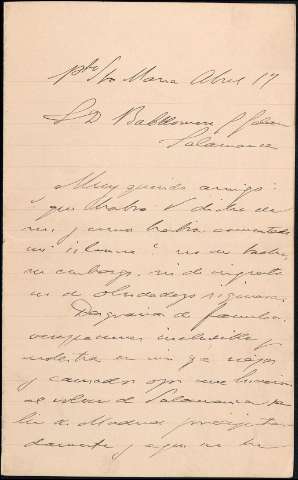 Pto Sta Maria Abril 17
S D Baldomero G Galan
Salamanca
Muy querido amigo:
que habrá V dicho de
mi, y como habrá comentado
mi silencio? no me tache,
sin embargo, ni de ingrato
ni de olvidadizo siquiera.
Desgracias de familia,
ocupaciones ineludibles y
molestia en mis ya viejos
y cansados ojos me hicieron
al volver de Salamanca sa
lir de Madrid precipitada
damente y aqui me he